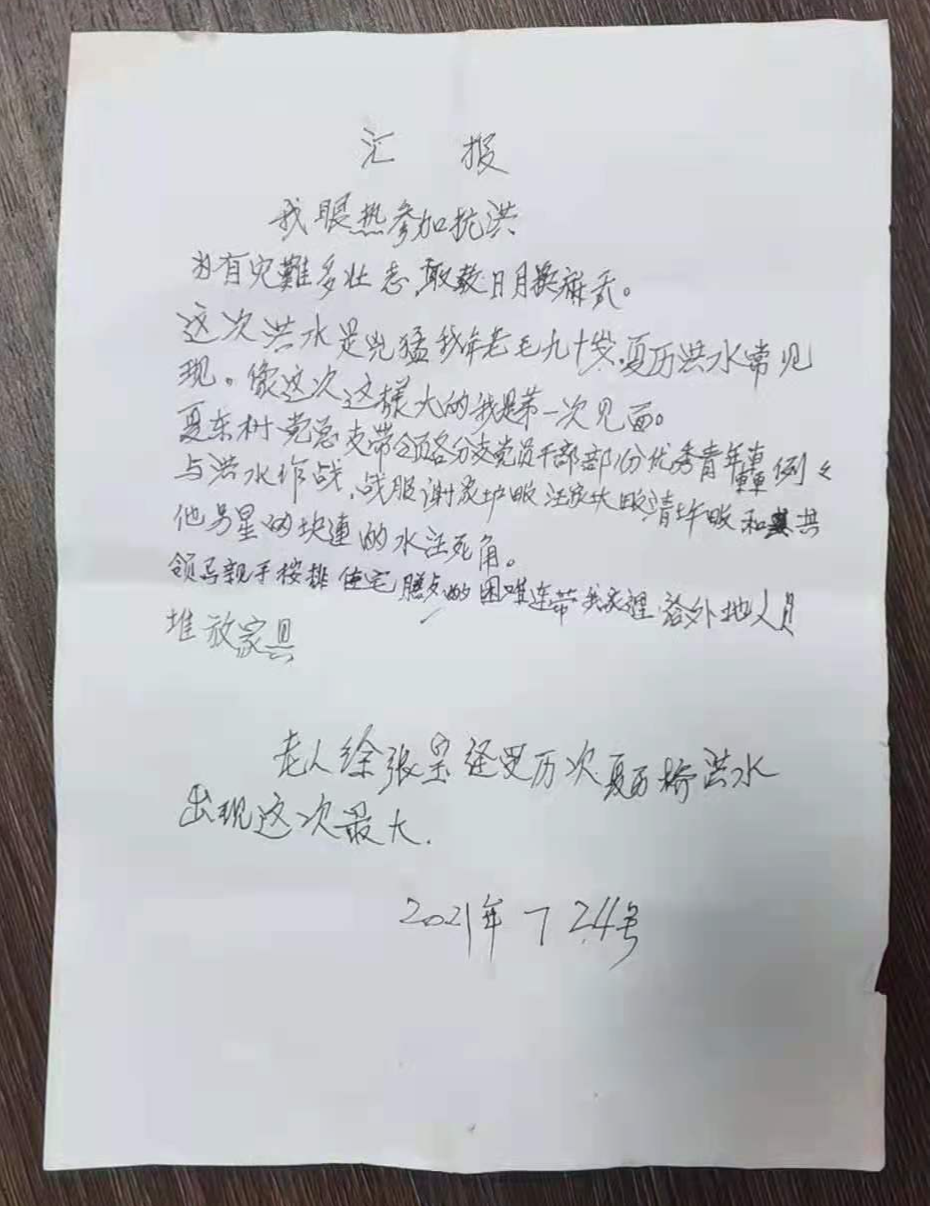 汇 报
我眼热参加抗洪
为有灾難多壮志,敢教日月换新天。
这次洪水是兇猛我年老毛九十岁,夏历洪水常见
现。像这次这樣大的我是第一次见面。
夏东树党总支带领各分支党员干部部份优秀青年轟
与洪水作战,战服谢家垆畈 汪家坎畈清圩畈和其
他另星的块連的水汪死角。
领马親手桉排住宅 的困难连带我家裡 给外地人员
堆放家具
老人徐张呆经受历次夏历桥洪水
出现这次最大.
2021年 7 24号